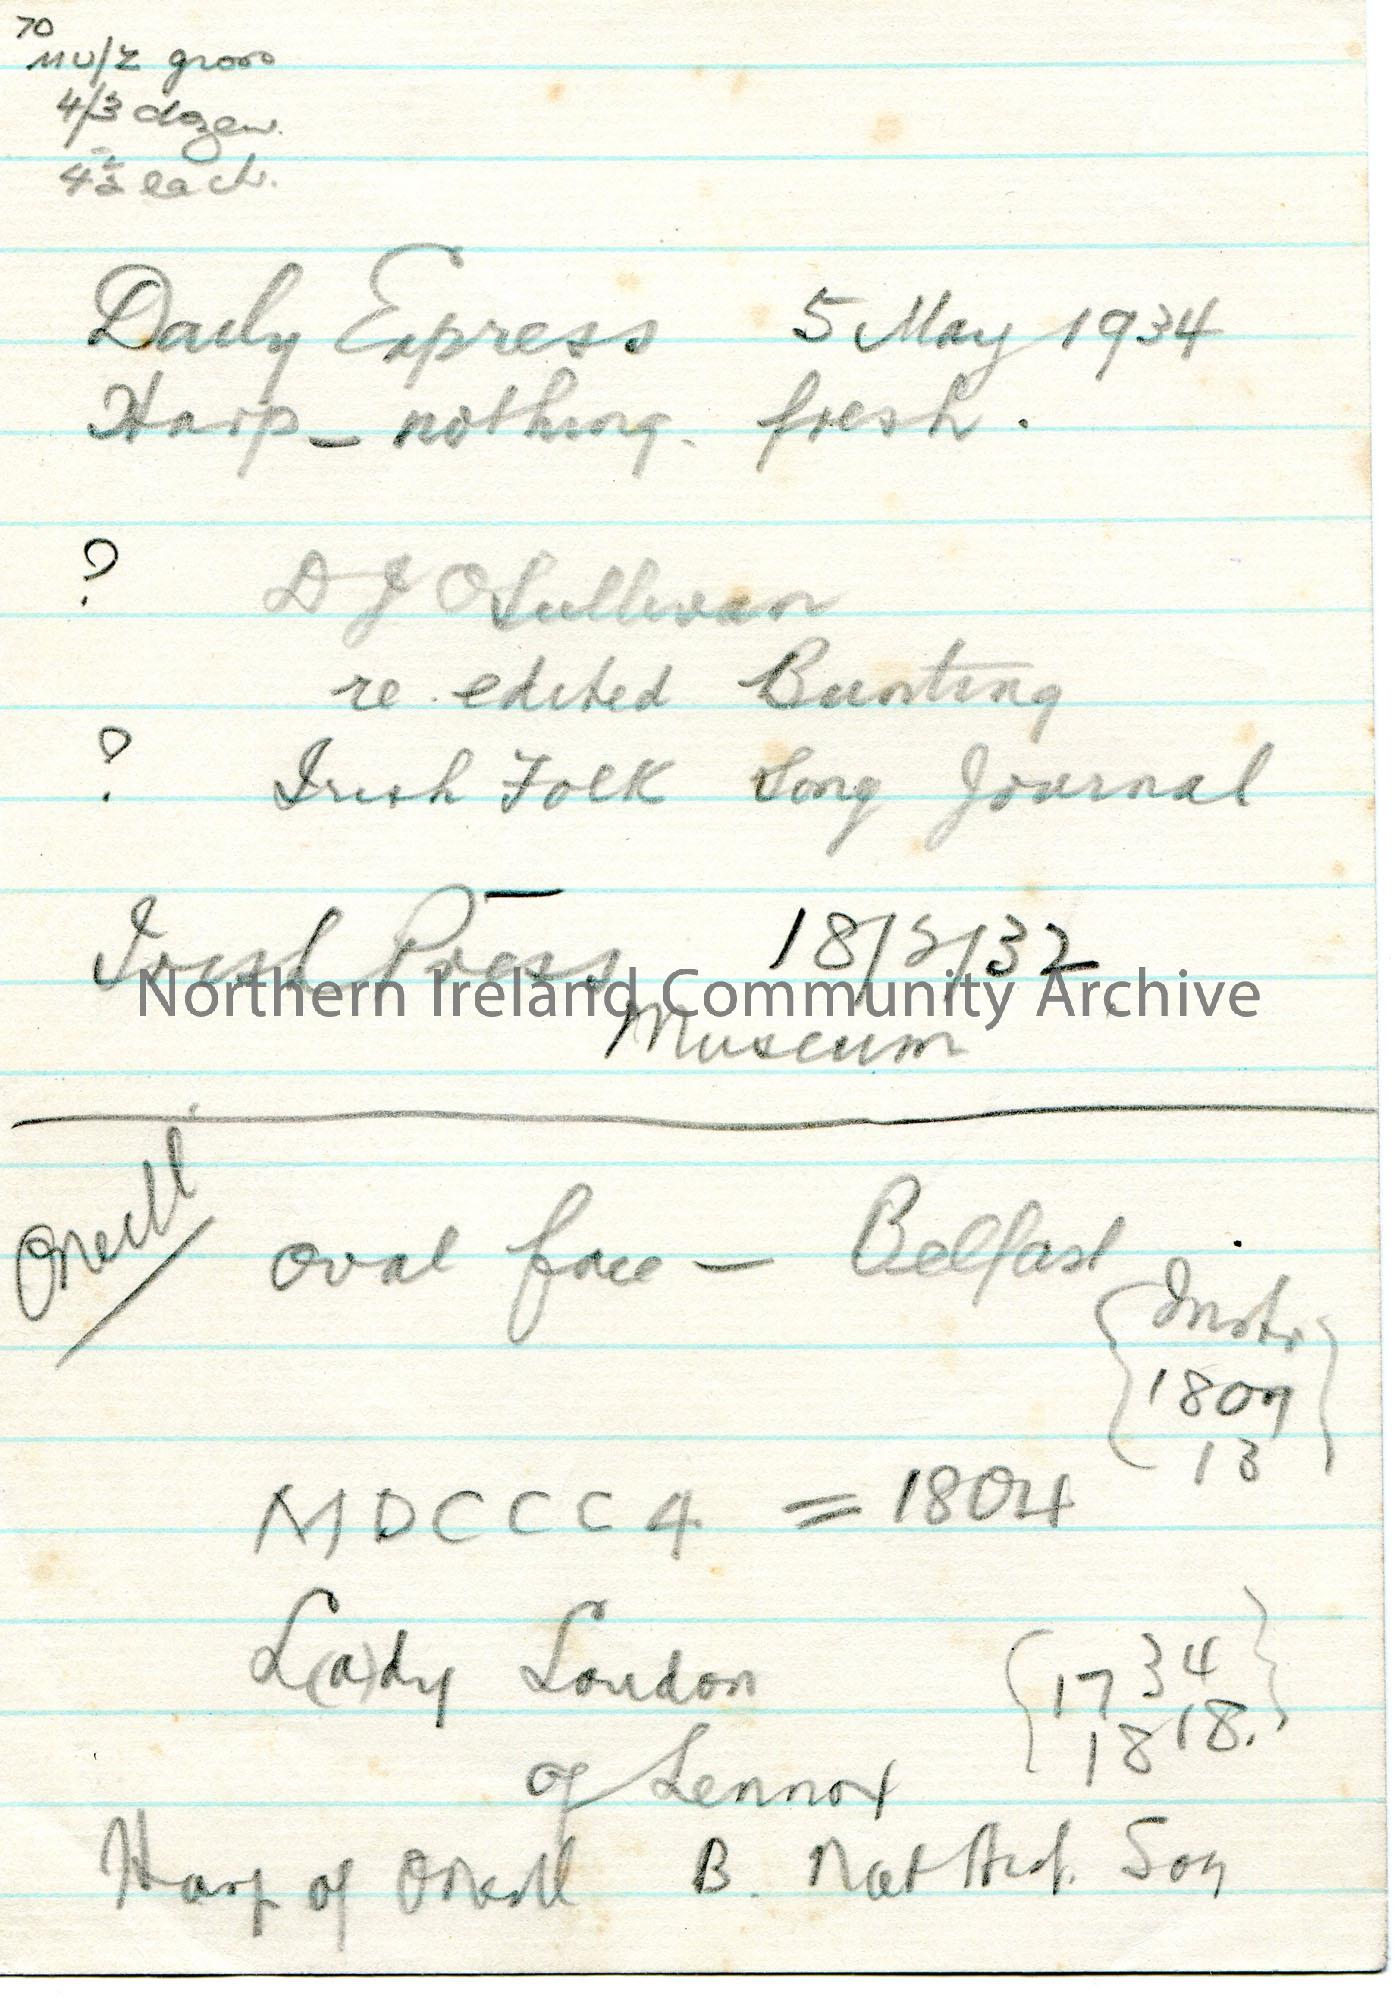 70
gross
4/3 dozen.
4½ each.
Daily Express 5 May 1934
Harp – nothing. fresh.
? D J OSullivan
re. edited Bunting
? Irish Folk Song Journal
Irish Press 18/5/32
Museum
Northern Ireland Community Archive
Oneill
oval face – Belfast
Instr.
1807
13
MDCCC4 = 1804
L(a)dy Loudon
1734
1818.
of Lennox
Harp of ONeill B. Nat Hist. Soy